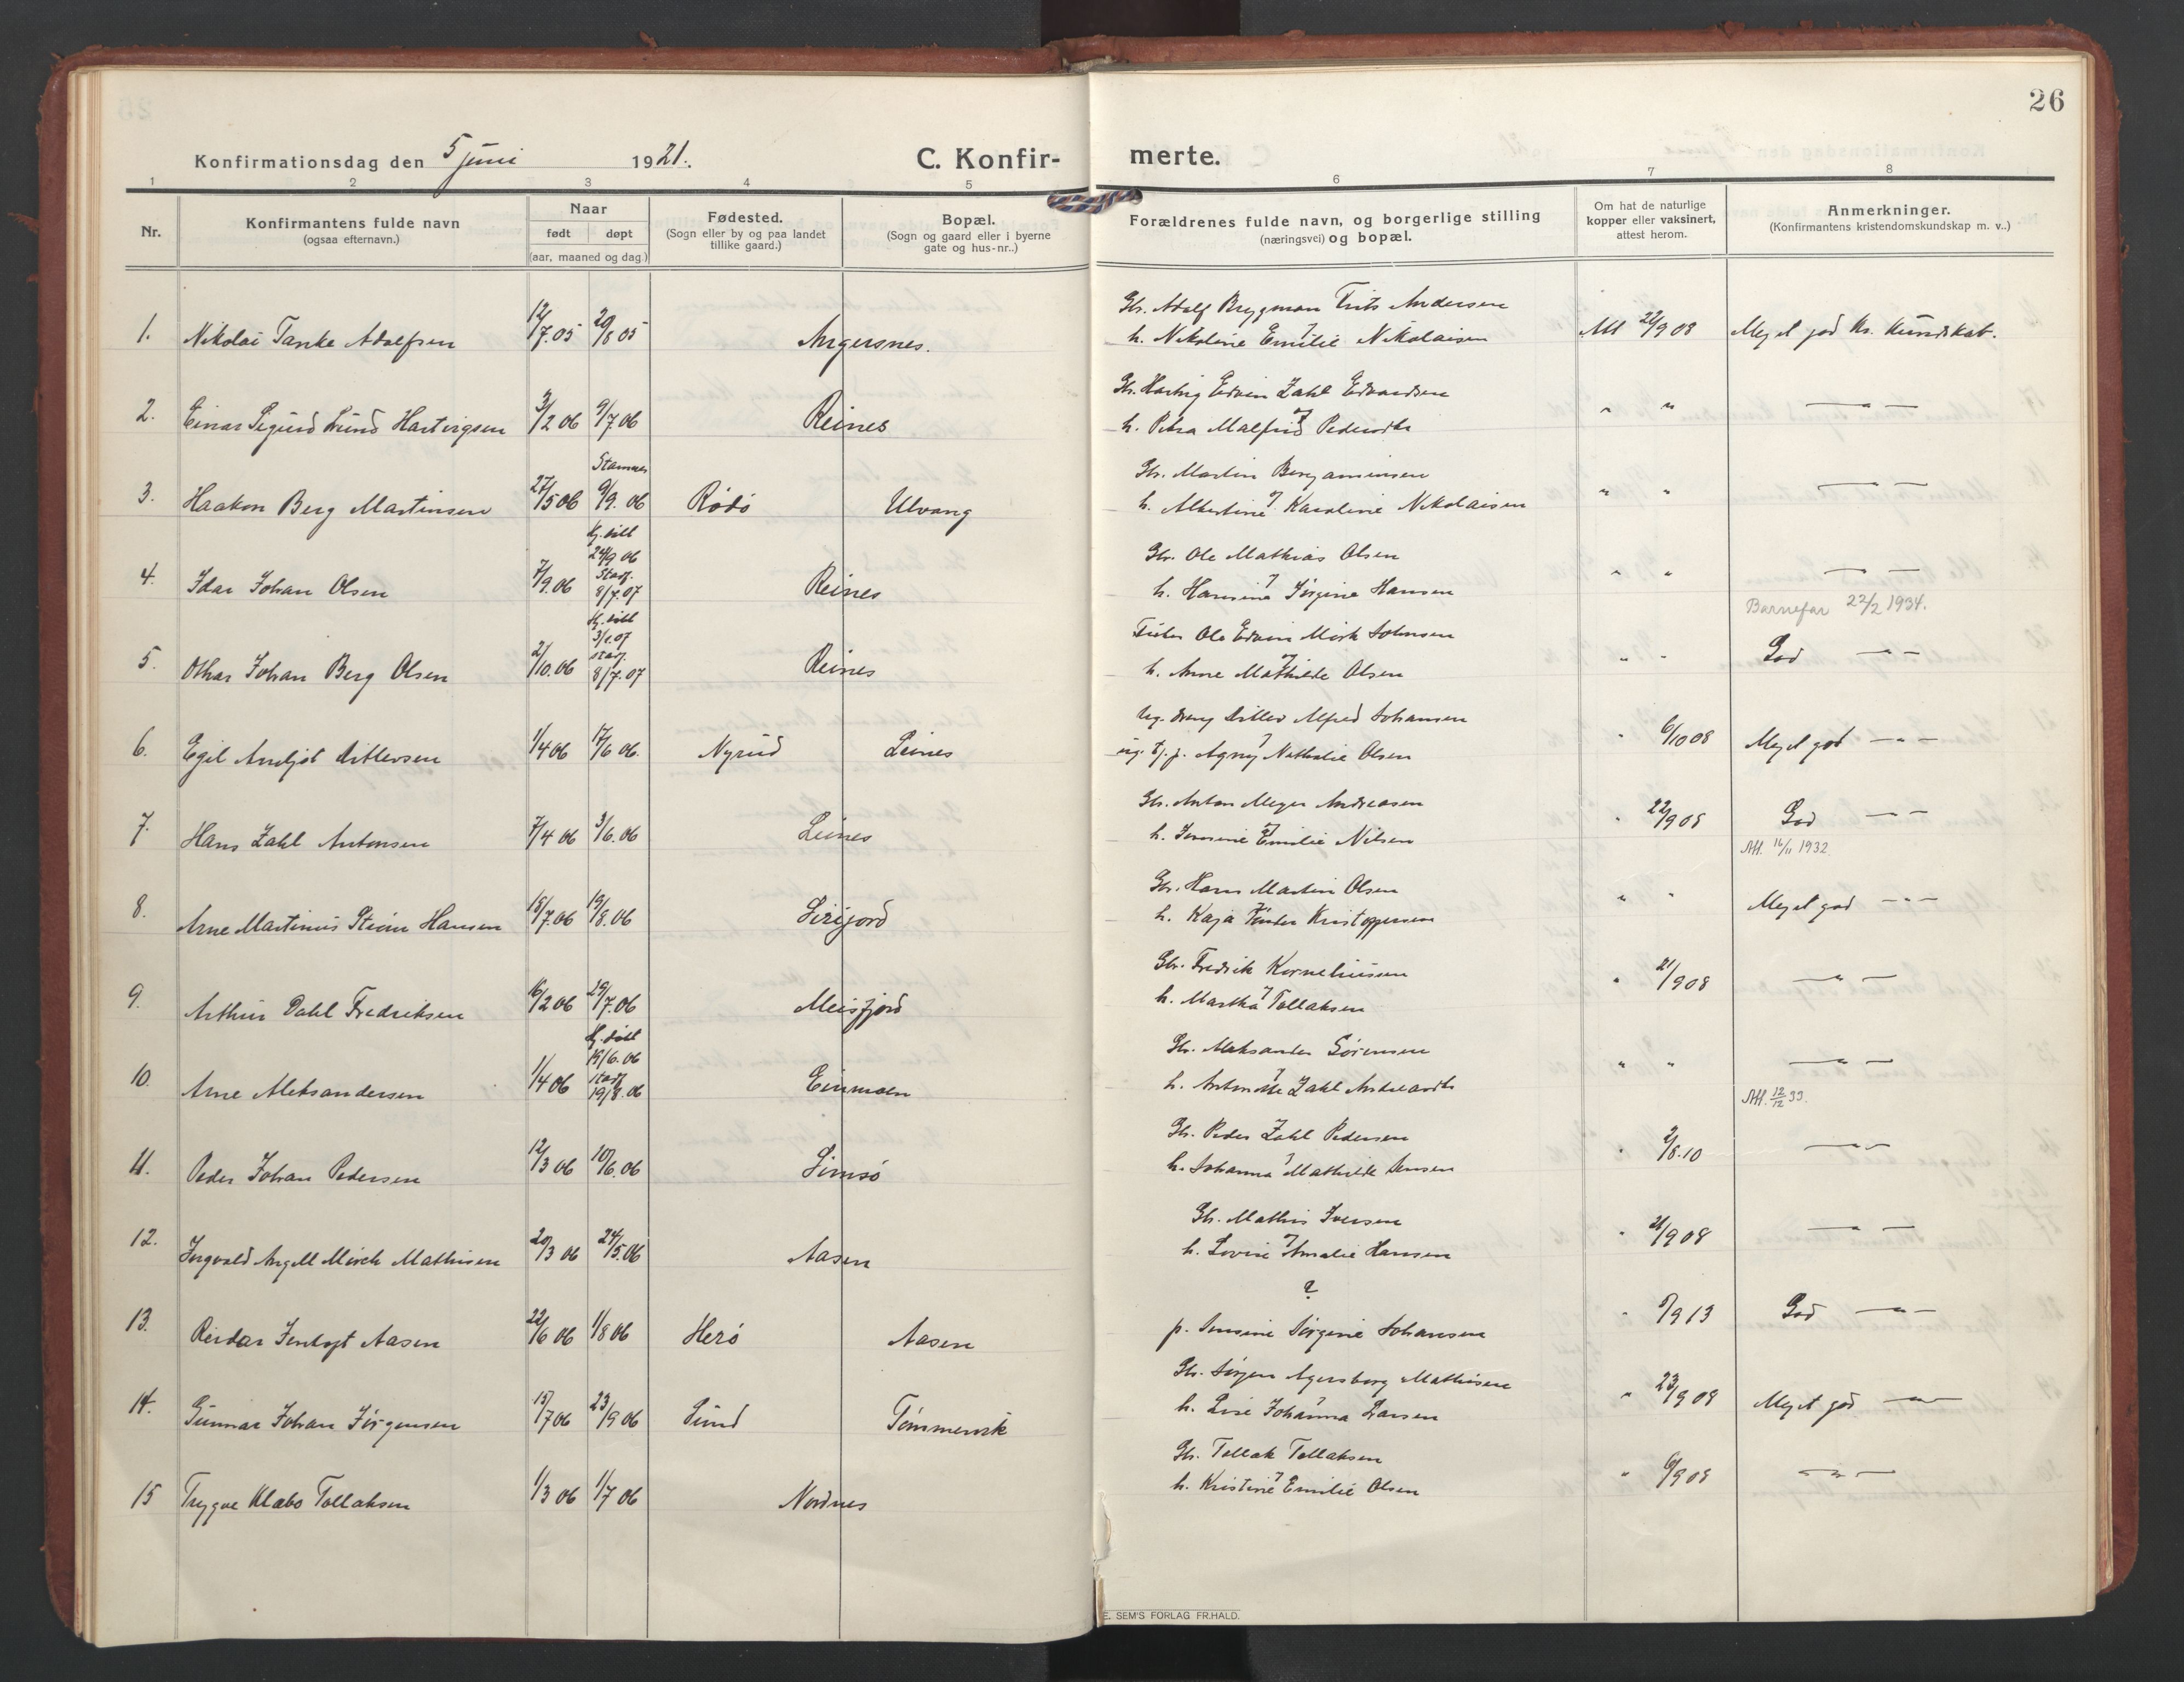 26
Konfirmationsdag den 5 juni 1921.
C. Konfir- merte.
1 2 3 4 5 6 7 8
Nr.
Konfirmantens fulde navn
(ogsaa efternavn.)
Naar
født døpt
(aar, maaned og dag.)
Fødested.
(Sogn eller by og paa landet
tillike gaard.)
Bopæl.
(Sogn og gaard eller i byerne
gate og hus-nr..)
Forældrenes fulde navn, og borgerlige stilling
(næringsvei) og bopæl.
Om hat de naturlige
kopper eller vaksinert,
attest herom.
Anmerkninger.
(Konfirmantens kristendomskundskap m. v..)
Gbr. Adolf Brygman Frits Andersen
1. Nikolai Tanke Adolfsen 12/7.05 20/8 05 Angersnes.
h. Nikoline Emilie Nikolaisen Att 22/9 08 Meget god kr. kundskab.
Gbr. Hartvig Edvin Zahl Edvardsen
2. Einar Sigurd Lund Hartvigsen 3/2 06 9/7 06 Reines
h. Petra Malfrid Pedersdtr " " —"—
3. Haakon Berg Martinsen 27/5 06 Stamnes 9/9. 06 Rødø Ulvang
Gbr. Martin Benjaminsen
h. Albertine Karoline Nikolaisen " " —"—
4. Idar Johan Olsen 7/9.06 Hj. døbt 24/9 06 Stadf. 8/7.07 Reines
Gbr. Ole Mathias Olsen
h. Hansine Jørgine Hansen " " —"—
Barnefar 22/2 1934.
5. Othar Johan Berg Olsen 2/10.06 Hj. døbt 3/1.07 stadf. 8/7.07 Reines
Fisker Ole Edvin Mørk Johnsen
h. Anne Mathilde Olsen " " God —"—
6. Egil Arnljot Ditlevsen 1/4 06 17/6 06. Nyrud Leines
Ug. dreng Ditlev Alfred Johansen
ug. tj. p. Agny Nathalie Olsen " 6/10 08 Meget god —"—
7. Hans Zahl Antonsen 7/4 06 3/6. 06 Leines
Gbr. Anton Meyer Andreasen
h. Jensine Emilie Nilsen " 22/9 08 God —"—
Att. 16/11 1932.
8. Arne Martinus Stein Hansen 18/7.06 19/8.06 Leirfjord
Gbr. Hans Martin Olsen
h. Kaja Kristoffersen " " Meget god —"—
9. Arthur Dahl Fredriksen 16/2 06 29/7.06 Meisfjord
Gbr. Fredrik Korneliussen
h. Martha Tollaksen " 21/9 08 —"—
10. Arne Aleksandersen 1/4 06 Hj. døbt 19/6.06 stadf. 19/8.06 Einmoen
Gbr. Aleksander Sørensen
h. Antonette Zahl Andreasdtr " " —"—
Att. 12/12 33.
11. Peder Johan Pedersen 12/3 06 10/6.06 Simsø
Gbr. Peder Zahl Pedersen
h. Johanna Mathilde Jensen " 2/8.10 —"—
12. Ingvald Angell Mørch Mathisen 20/3 06 24/5.06 Aasen
Gbr. Mathis Iversen
h. Lovise Amalie Hansen " 21/9 08 —"—
?
13. Reidar Aasen 22/6 06 1/8 06 Herø Aasen
p. Jensine Jørgine Johansen " 5/9 13 God —"—
14. Gunnar Johan Jørgensen 15/7 06 23/9 06 Sund Tømmervik
Gbr. Jørgen Agersborg Mathisen
h. Lise Johanna Larsen " 23/9 08 Meget god —"—
15 Trygve Klæbo Tollaksen 1/3 06 1/7 06 Nordnes
Gbr. Tollak Tollaksen
h. Kristine Emilie Olsen " 6/9 08 —"—
E. SEM'S FORLAG FR.HALD.